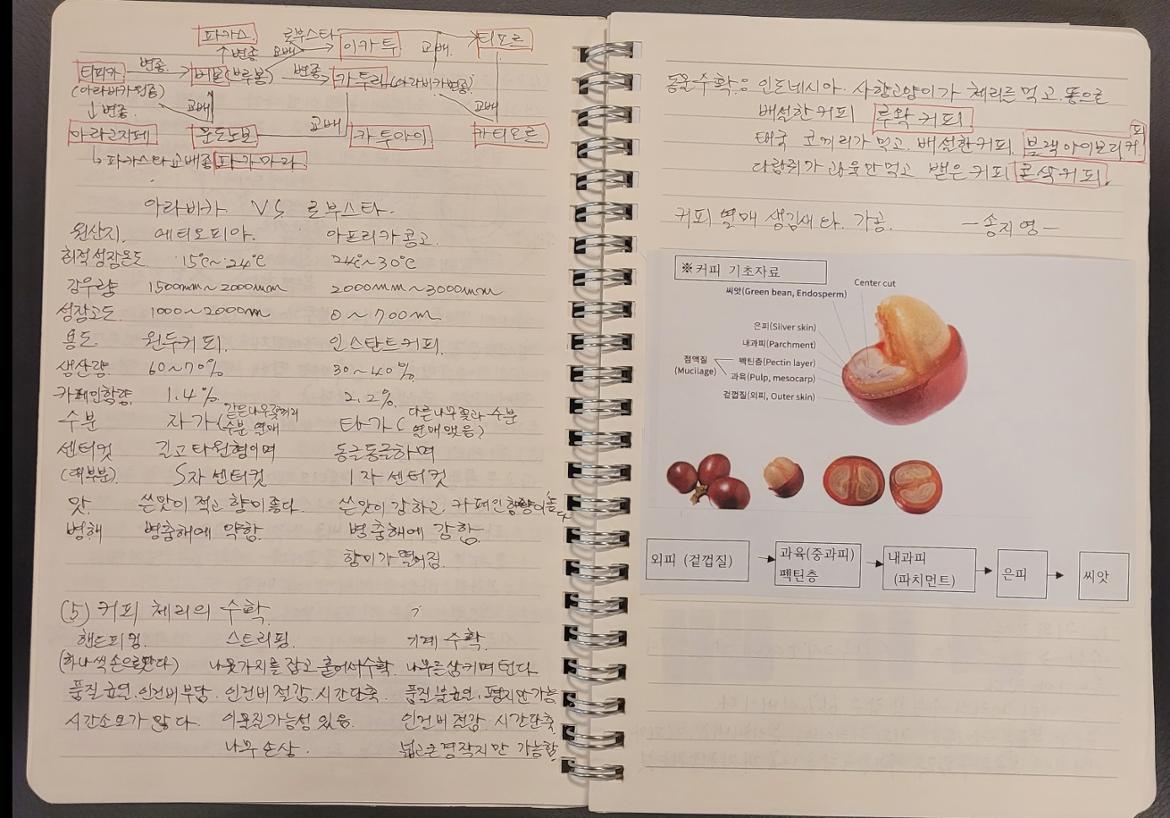 파카스. 로부스타 이카투 교배. 티모르
↑변종 교배
티피카 변종 버본(브루봉) 변종 카투라(아라비카변종)
(아라비카원종)
↓변종 교배 교배
아라고지페 문도노보 교배 카투아이 카티모르
↳파카스타교배종 파카마라
아라비카 VS 로부스타.
원산지. 에티오피아. 아프리카 콩고.
최적성장온도 15℃~24℃ 24℃~30℃
강우량 1500mm~2000mm 2000mm~3000mm
성장고도 1000~2000m 0~700m
용도 원두커피. 인스탄트커피.
생산량 60~70% 30~40%
카페인함량 1.4% 2.2%
수분 자가(같은나무꽃끼리 수분 열매 타가(다른나무꽃과 수분 열매맺음)
센터컷 길고 타원형이며 동글동글하며
(대부분) S자 센터컷 1자 센터컷
맛 쓴맛이 적고 향이좋다. 쓴맛이 강하고 카페인함량이높다
병해 병충해에 약함. 병충해에 강함.
향미가 떨어짐.
(5) 커피 체리의 수확.
핸드피킹. 스트리핑. 기계 수확.
(하나씩손으로딴다) 나뭇가지를 잡고 훑어서수확 나무를상키며 턴다.
품질균일.인건비부담. 인건비절감.시간단축. 품질불균일.평지만가능
시간소모가 많다. 이물질가능성있음. 인건비절감 시간단축
나무손상. 넓은경작지만 가능함
동물수확은 인도네시아. 사향고양이가 체리를 먹고.똥으로
배설한커피 루왁커피
태국 코끼리가먹고 배설한커피 블랙아이보리커피
다람쥐가 과육만먹고 뱉은 커피 콘삭커피.
커피 열매 생김새와 가공. -송지영-
※커피 기초자료
Center cut
씨앗(Green bean, Endosperm)
은피(Silver skin)
내과피(Parchment)
점액질 (Mucilage) 펙틴층(Pectin layer)
과육(Pulp, mesocarp)
겉껍질(외피, Outer skin)
외피 (겉껍질) 과육(중과피) 펙틴층 내과피 (파치먼트) 은피 씨앗